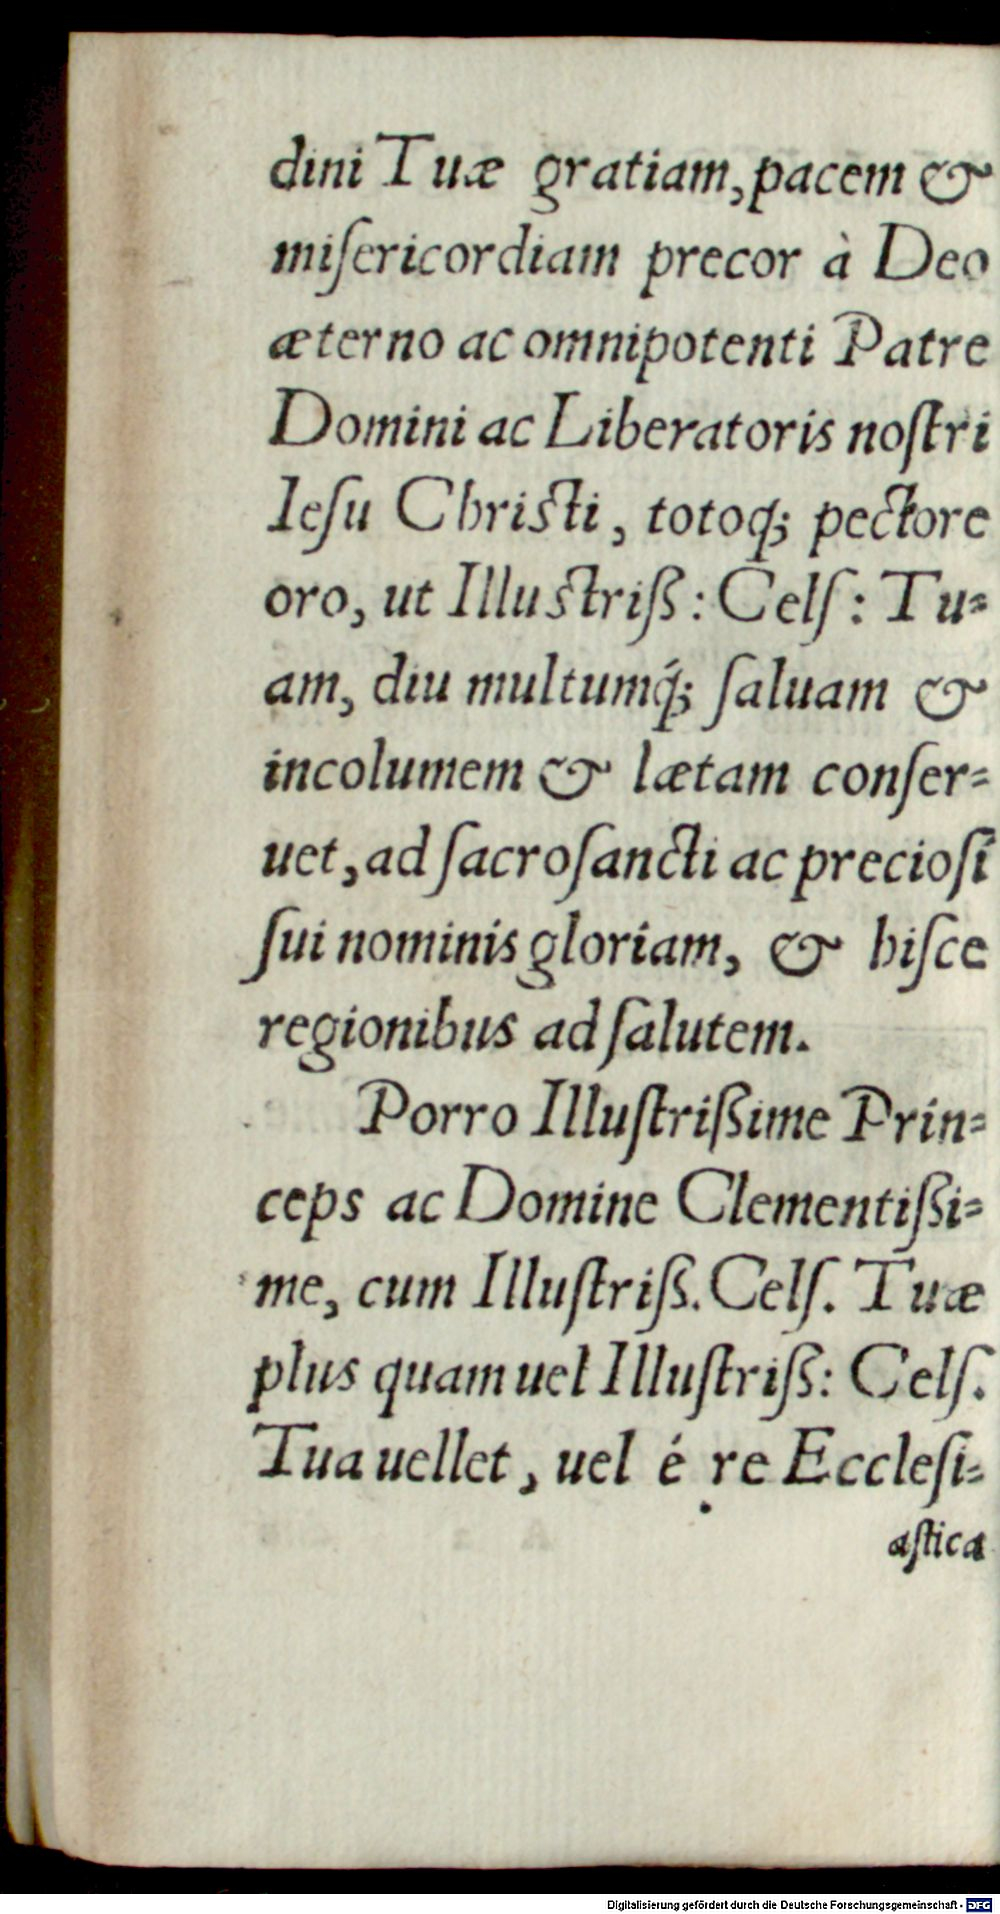 dini Tuæ gratiam, pacem &
miſericordiam precor à Deo
æterno ac omnipotenti Patre
Domini ac Liberatoris noſtri
Ieſu Chriſti, totoq; pectore
oro, ut Illuſtriß: Celſ: Tu=
am, diu multumq́; ſaluam &
incolumem & lætam conſer=
uet, ad ſacroſancti ac precioſi
ſui nominis gloriam, & hiſce
regionibus ad ſalutem.
Porro Illuſtrißime Prin=
ceps ac Domine Clementißi=
me, cum Illuſtriß. Celſ. Tuæ
plus quam uel Illuſtriß: Celſ.
Tua uellet, uel é re Eccleſi=
aſtica
Digitalisierung gefördert durch die Deutsche Forschungsgemeinschaft - DFG